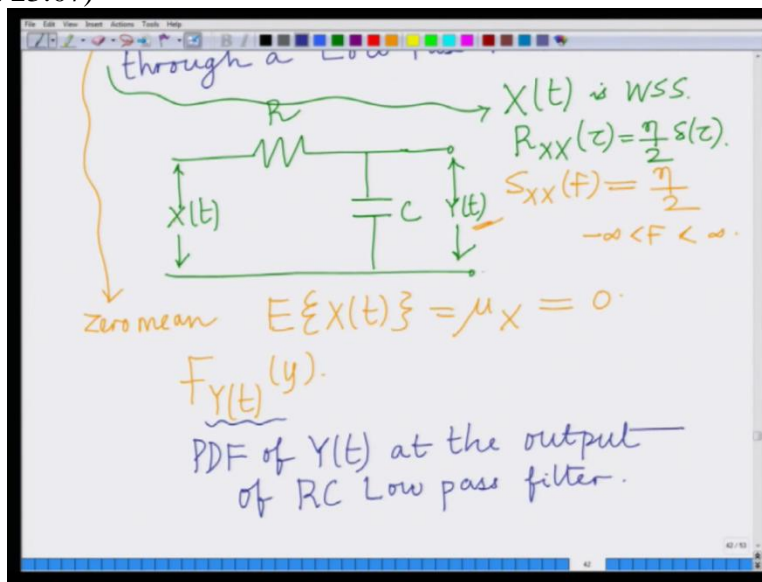 23:07)
File Edit View Insert Actions Tools Help
through a Low Pass
X(t) is WSS.
R
R_XX(τ) = η/2 δ(τ).
S_XX(F) = η/2
X(t) C Y(t)
-∞ < F < ∞.
Zero mean E{X(t)} = μ_X = 0.
F_Y(t)(y).
PDF of Y(t) at the output
of RC Low pass filter.
42 / 53
42